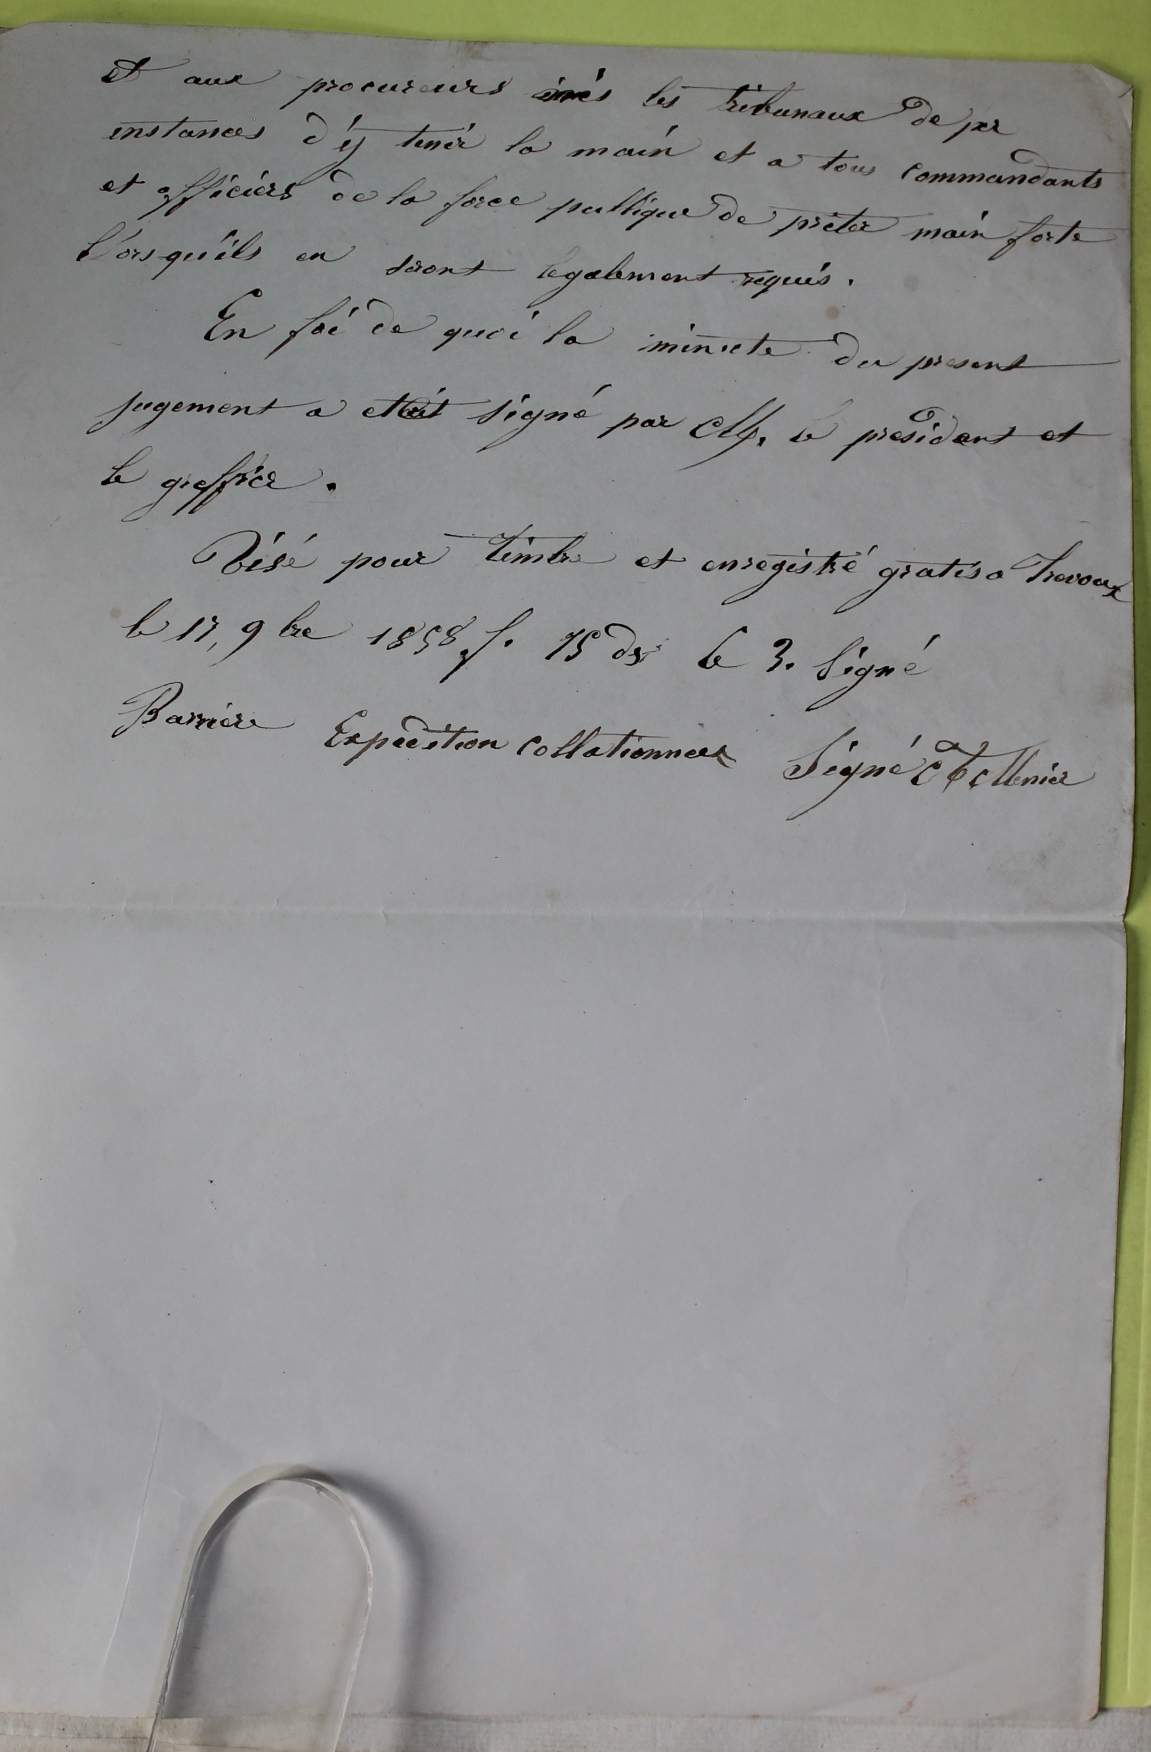 et aux procureurs près les tribunaux de per
instances d'y tenir la main et a tous commandants
et officiers de la force publique de prêter main forte
l'orsqu'ils en seront legalement requis.
En foi de quoi la minute du present
jugement a était signé par M. le president et
le greffier.
Visé pour timbre et enregistré gratis a Trevoux
le 17, 9bre 1858, f. 75 de le 3. Signé
Barriere Expedition collationnee Signé